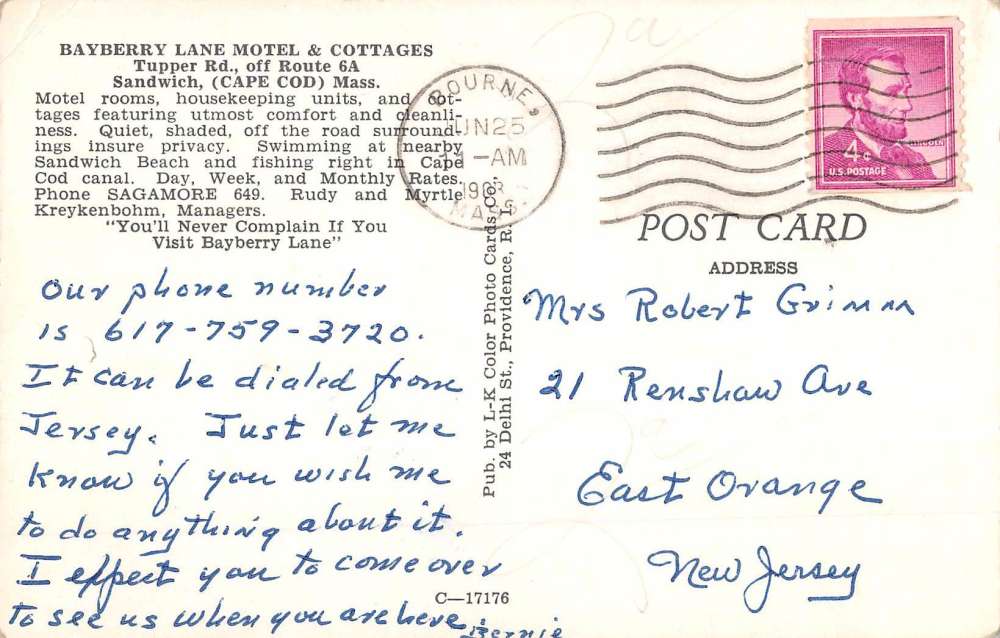 BAYBERRY LANE MOTEL & COTTAGES
Tupper Rd., off Route 6A
Sandwich, (CAPE COD) Mass.
Motel rooms, housekeeping units, and cot-
tages featuring utmost comfort and cleanli-
ness. Quiet, shaded, off the road surround-
ings insure privacy. Swimming at nearby
Sandwich Beach and fishing right in Cape
Cod canal. Day, Week, and Monthly Rates.
Phone SAGAMORE 649. Rudy and Myrtle
Kreykenbohm, Managers.
"You'll Never Complain If You
Visit Bayberry Lane"
our phone number
is 617-759-3720.
It can be dialed from
Jersey. Just let me
know if you wish me
to do anything about it.
I expect you to come over
to see us when you are here.
Bernie
Pub. by L-K Color Photo Cards Co.,
24 Delhi St., Providence, R. I.
C—17176
BOURNE,
JUN 25
-AM
MASS.
LINCOLN
4¢
U.S. POSTAGE
POST CARD
ADDRESS
Mrs Robert Grimm
21 Renshaw Ave
East Orange
New Jersey